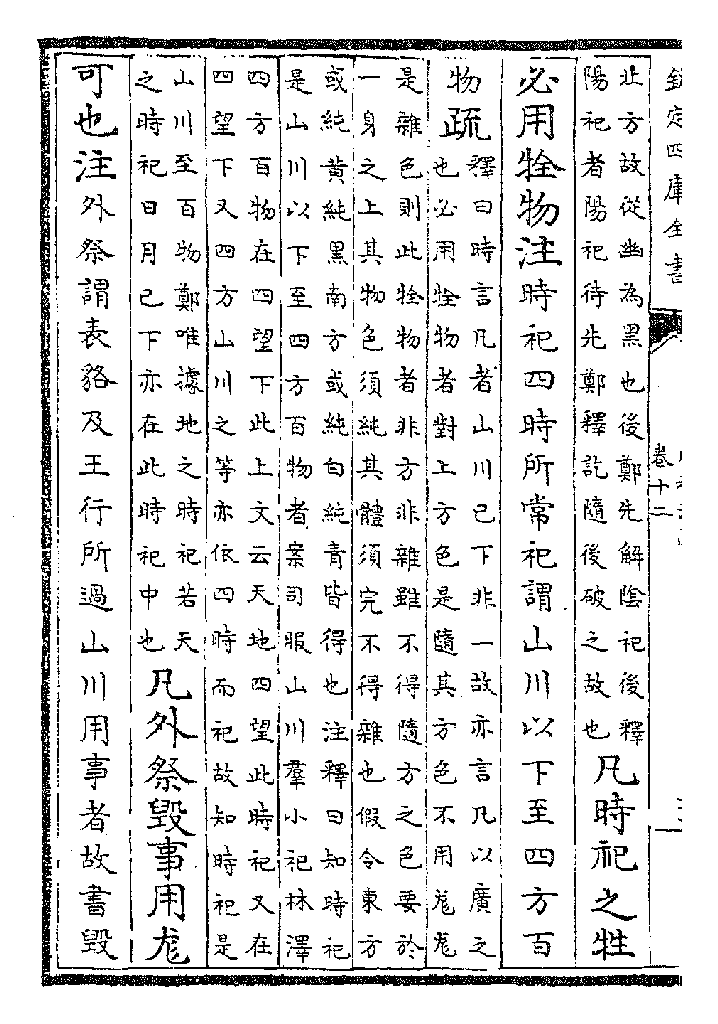 欽定四庫全書
卷十二
北方故從幽為黑也後鄭先解陰祀後釋
陽祀者陽祀待先鄭釋訖隨後破之故也
凡時祀之牲
必用牷物注時祀四時所常祀謂山川以下至四方百
物疏
釋曰時言凡者山川已下非一故亦言凡以廣之
也必用牷物者對上方色是隨其方色不用尨尨
是雜色則此牷物者非方非雜雖不得隨方之色要於
一身之上其物色須純其體須完不得雜也假令東方
或純黃純黑南方或純白純青皆得也注釋曰知時祀
是山川以下至四方百物者案司服山川羣小祀林澤
四方百物在四望下此上文云天地四望此時祀又在
四望下又四方山川之等亦依四時而祀故知時祀是
山川至百物鄭唯據地之時祀若天
之時祀日月已下亦在此時祀中也
凡外祭毀事用尨
可也注外祭謂表貉及王行所過山川用事者故書毀